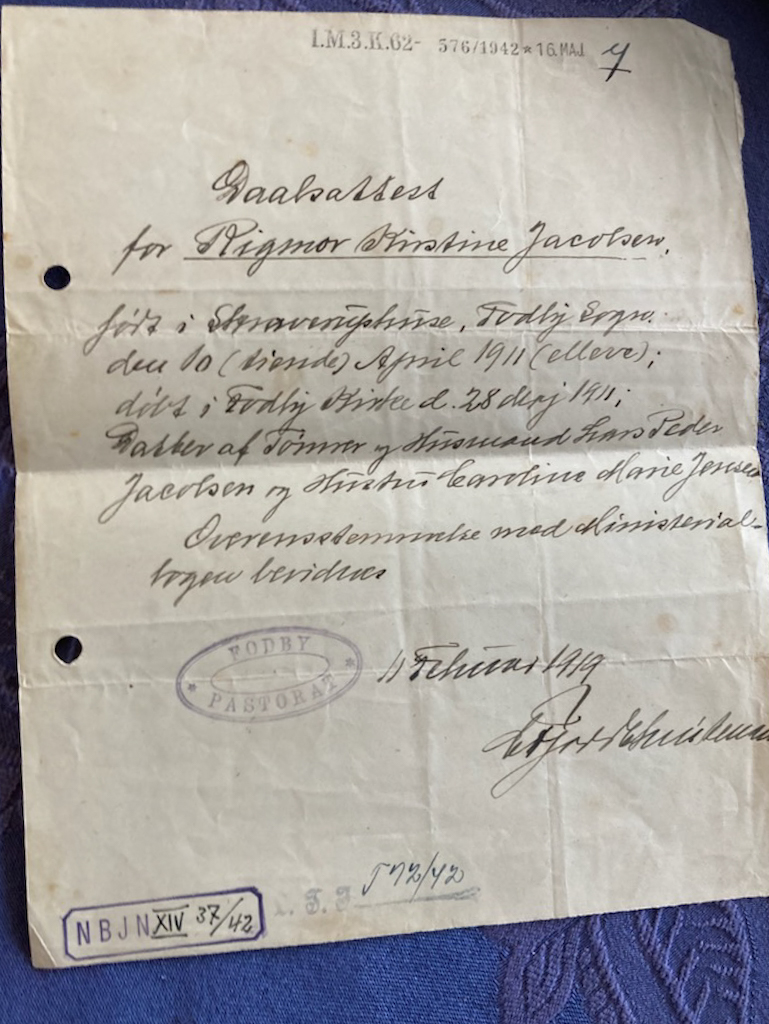 I.M.3.K.62- 576/1942 * 16. MAJ 7
Daabsattest
for Rigmor Kirstine Jacobsen,
født i Skraveruphuse, Fodby Sogn.
den 10 (tiende) April 1911 (elleve);
døbt i Fodby Kirke d. 28 Maj 1911;
Datter af Tømrer og Husmand Lars Peder
Jacobsen og Hustru Caroline Marie Jensen
Overensstemmelse med Ministerial-
bogen bevidnes
FODBY
* PASTORAT *
11 Februar 1919
J 72/42
NBJN XIV 37/42